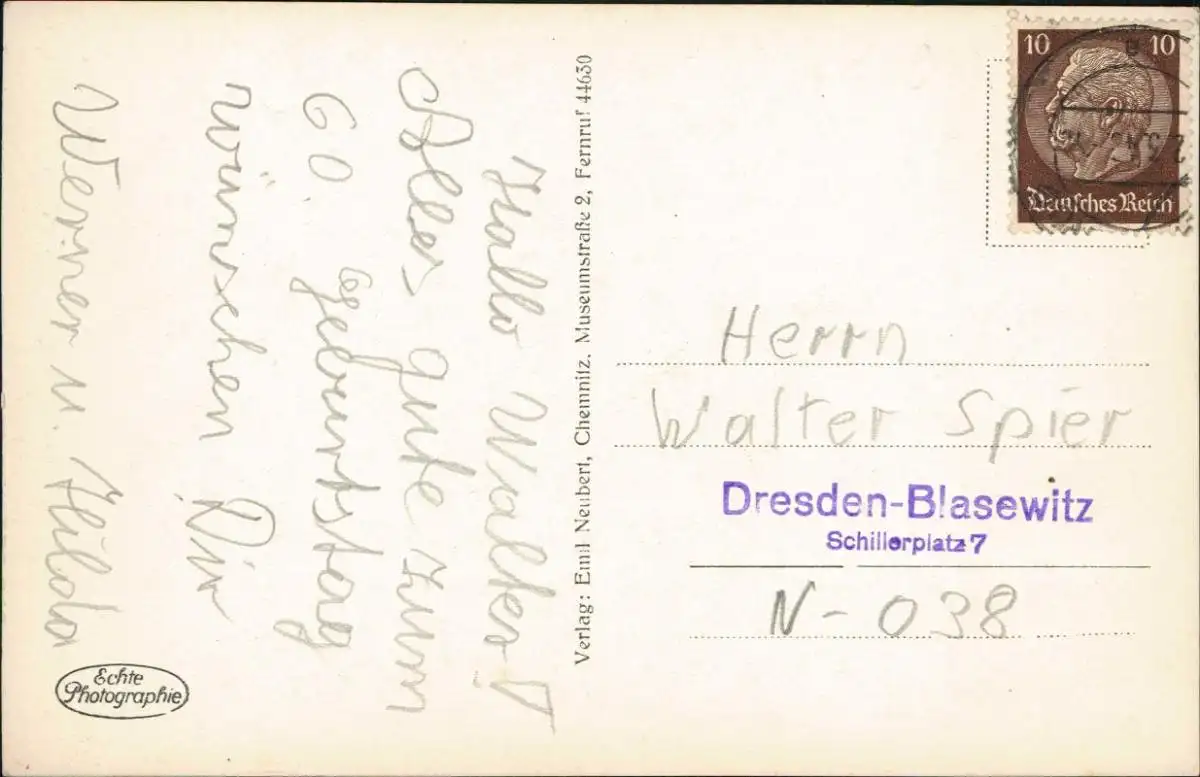 Hallo Walter!
Alles gute zum
60. Geburtstag
wünschen Dir
Werner u. Hilda
Echte
Photographie
Verlag: Emil Neubert, Chemnitz, Museumstraße 2, Fernruf 44630
10 10
Deutsches Reich
Herrn
Walter Spier
Dresden-Blasewitz
Schillerplatz 7
N-038